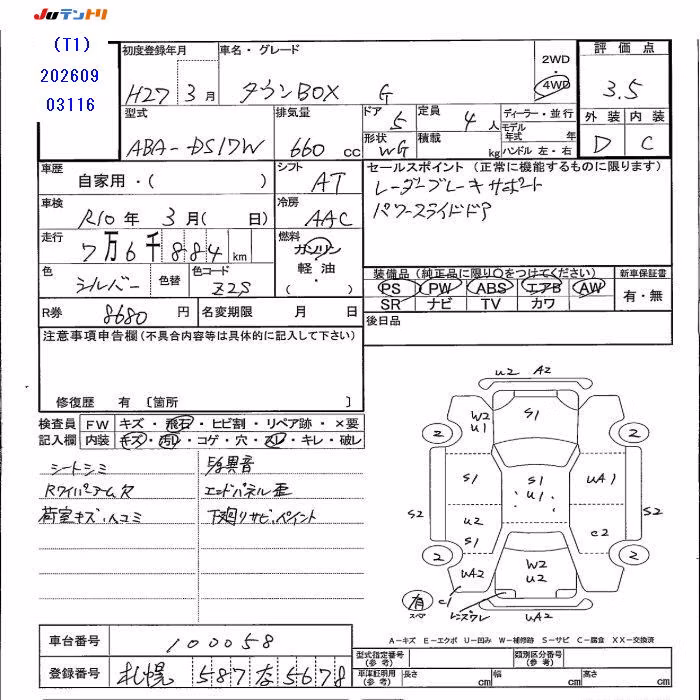 JUテントリ
(T1)
202609
03116
初度登録年月
H27 3月
車名・グレード
タウンBOX G
2WD
・
4WD
評価点
3.5
型式
ABA-DS17W
排気量
660 cc
ドア 5
定員 4 人
形状 WG
積載 kg
ディーラー・並行
モデル年式 年
ハンドル 左・右
外装 内装
D C
車歴
自家用・( )
シフト
AT
セールスポイント (正常に機能するものに限ります)
レーダーブレーキサポート
パワースライドドア
車検
R10年 3月( 日)
冷房
AAC
走行
7万6千884km
燃料
ガソリン
軽油・
( )
色
シルバー
色替
色コード
Z2S
装備品(純正品に限り○をつけてください)
PS PW ABS エアB AW
SR ナビ TV カワ
新車保証書
有・無
R券 8680 円
名変期限 月 日
後日品
注意事項申告欄(不具合内容等は具体的に記入して下さい)
修復歴 有 〔箇所 〕
検査員
記入欄
FW キズ・飛石・ヒビ割・リペア跡・×要
内装 キズ・汚レ・コゲ・穴・スレ・キレ・破レ
シートシミ
Rワイパーアーム欠
荷室キズ、凹コミ
異音
エンドパネル歪
下廻りサビ、ペイント
U2 A2
W2
U1
S1
2 2
S1 S1 UA1
U1
S2 S2
U2
S1 C2
2 2
UA2 W2
U2
有
スペア
C1
レンズワレ
UA2
A-キズ E-エクボ U-凹み W-補修跡 S-サビ C-腐食 XX-交換済
車台番号 100058
登録番号 札幌 587 な 5678
型式指定番号
(参考)
類別区分番号
(参考)
車庫証明用
(参考)
長さ cm 幅 cm 高さ cm